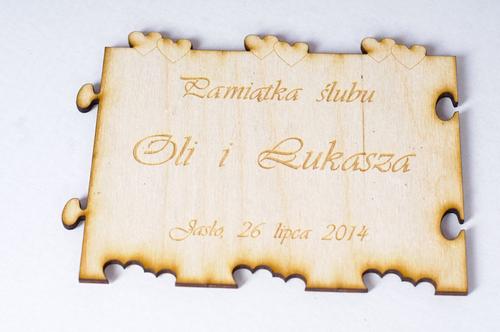 Pamiątka ślubu
Oli i Łukasza
Jasło, 26 lipca 2014